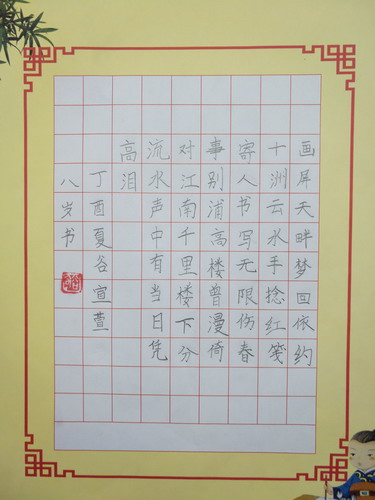 画屏天畔梦回依约
十洲云水手捻红笺
寄人书写无限伤春
事别浦高楼曾漫倚
对江南千里楼下分
流水声中有当日凭
高泪
丁酉夏谷宣萱
八岁书